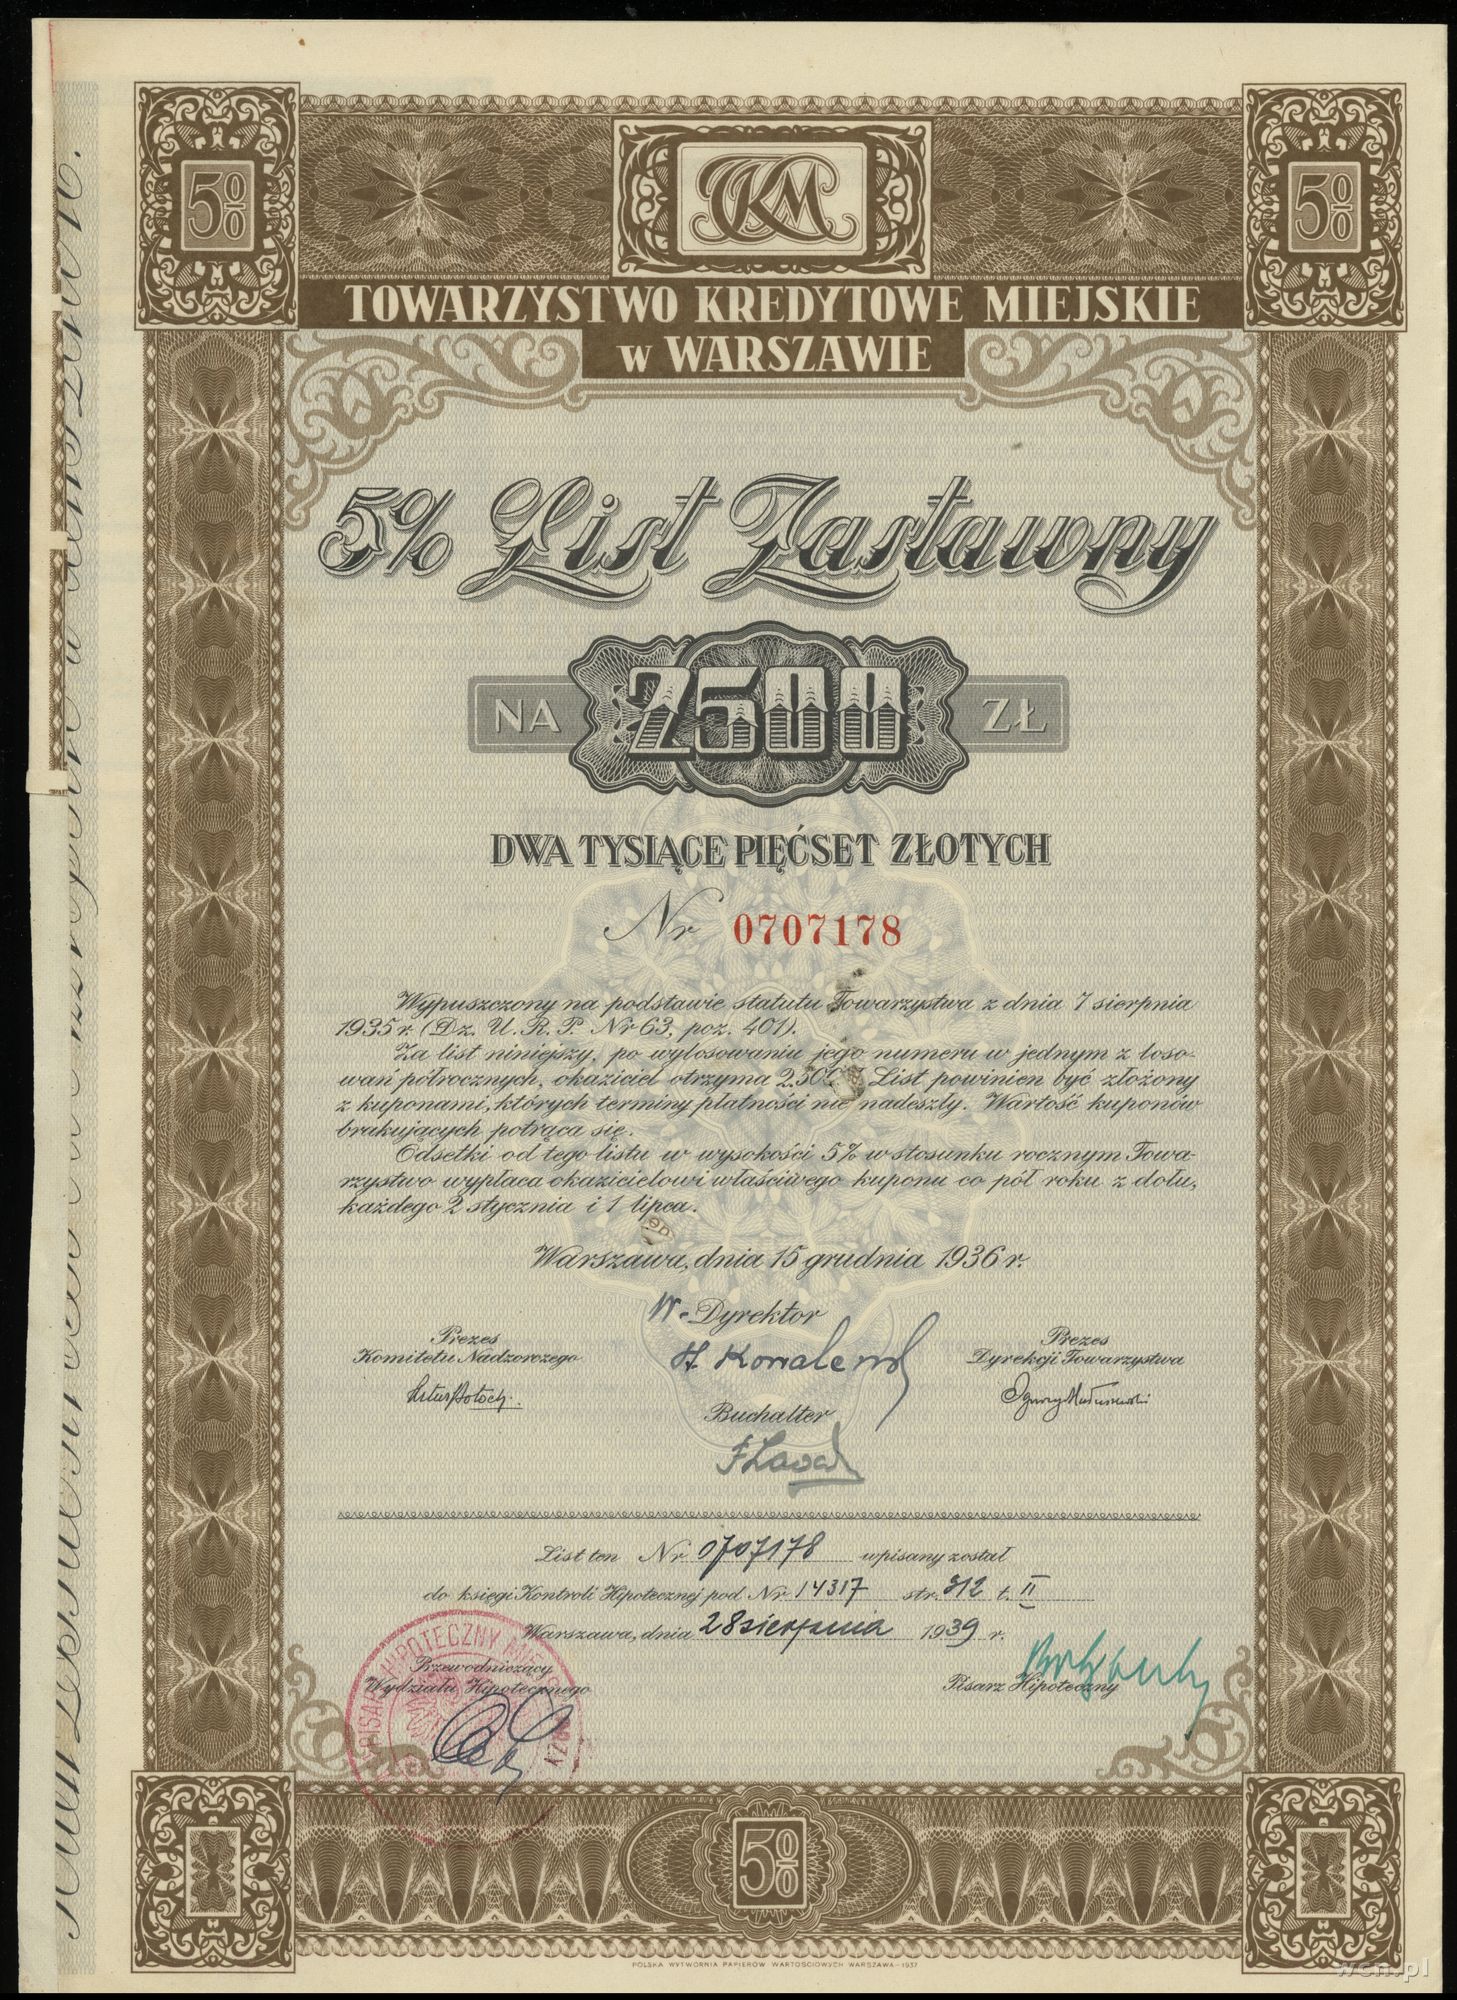 5%
TKM
5%
TOWARZYSTWO KREDYTOWE MIEJSKIE
w WARSZAWIE
5% List Zastawny
NA 2500 ZŁ
DWA TYSIĄCE PIĘĆSET ZŁOTYCH
Nr 0707178
Wypuszczony na podstawie statutu Towarzystwa z dnia 7 sierpnia
1935 r. (Dz. U. R. P. Nr 63, poz. 401).
Za list niniejszy, po wylosowaniu jego numeru w jednym z loso-
wań półrocznych, okaziciel otrzyma 2.500 List powinien być złożony
z kuponami, których terminy płatności nie nadeszły. Wartość kuponów
brakujących potrąca się.
Odsetki od tego listu w wysokości 5% w stosunku rocznym Towa-
rzystwo wypłaca okazicielowi właściwego kuponu co pół roku z dołu,
każdego 2 stycznia i 1 lipca.
Warszawa, dnia 15 grudnia 1936 r.
W-Dyrektor
Prezes
Komitetu Nadzorczego
Prezes
Dyrekcji Towarzystwa
Buchalter
List ten Nr 0707178 wpisany został
do księgi Kontroli Hipotecznej pod Nr 14317 str. 212 t. II
Warszawa, dnia 28 sierpnia 1939 r.
Przewodniczący
Wydziału Hipotecznego
Pisarz Hipoteczny
HIPOTECZNY
5%
POLSKA WYTWÓRNIA PAPIERÓW WARTOŚCIOWYCH WARSZAWA-1937
wcn.pl